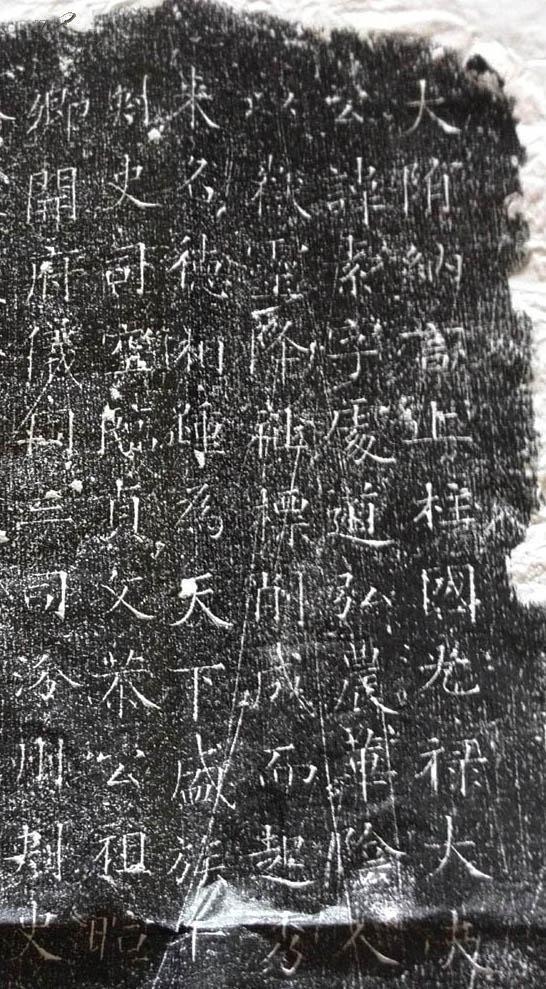 大隋納言上柱國光禄大夫
公諱素字處道弘農華陰人
以嶽靈降祉標削成而起秀
来名德相踵為天下盛族
刾史司空臨貞文恭公祖暄
卿開府儀同三司汾州刾史